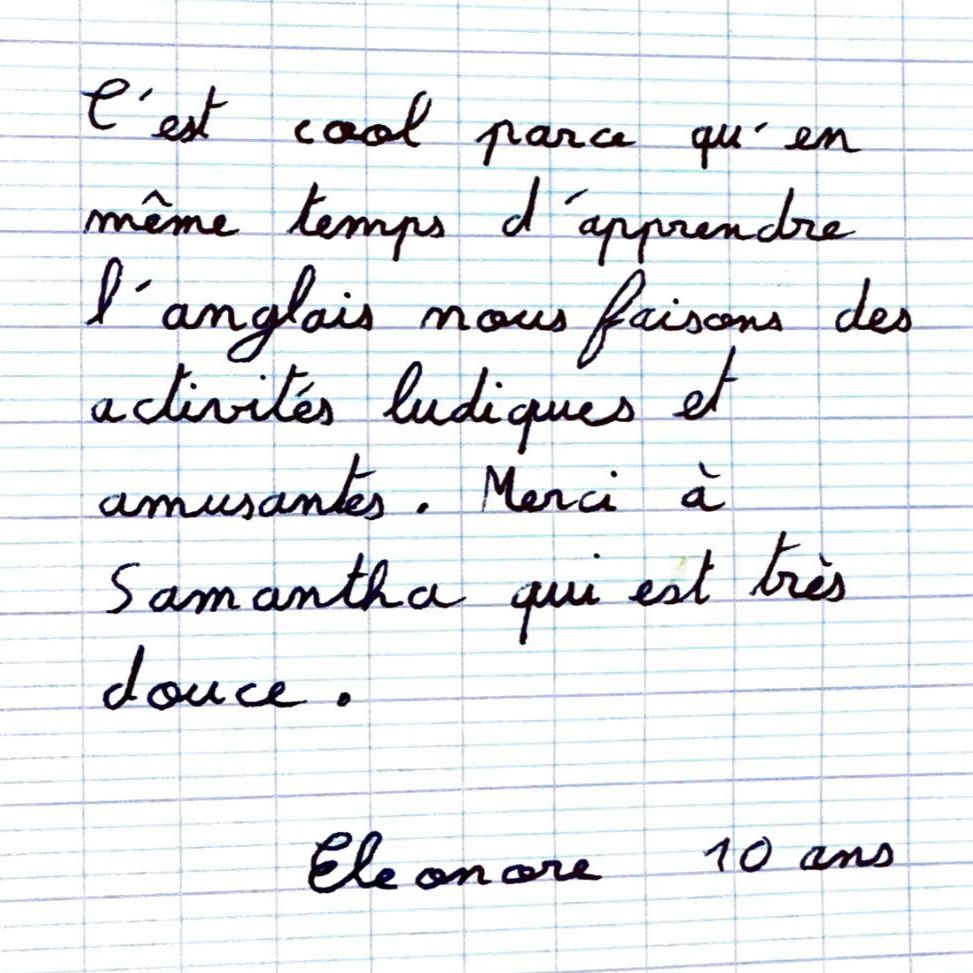 C'est cool parce qu'en
même temps d'apprendre
l'anglais nous faisons des
activités ludiques et
amusantes. Merci à
Samantha qui est très
douce.
Eleonore 10 ans